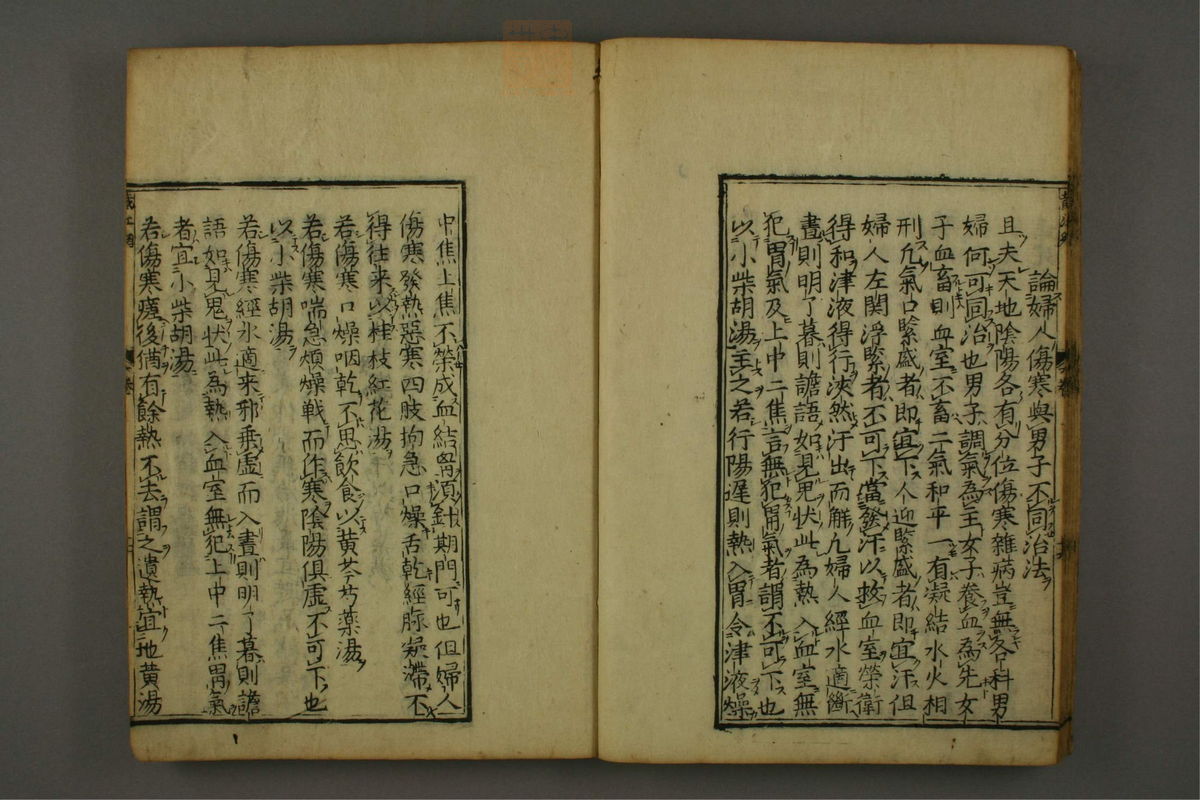 論婦人傷寒與男子不同治法
且夫天地陰陽各有分位傷寒雜病豈無各科男
婦何可同治也男子調氣為主女子養血為先女
子血畜則血室不畜二氣和平一有凝結水火相
刑凢氣口緊盛者即宜下人迎緊盛者即宜汗但
婦人左関浮緊者不可下當發汗以救血室榮衛
得和津液得行浹然汗出而解凢婦人經水適斷
晝則明了暮則譫語如見鬼状此為熱入血室無
犯胃氣及上中二焦言無犯胃氣者謂不可下也
以小柴胡湯主之若行陽遅則熱入胃令津液燥
中焦上焦不榮成血結胷須針期門可也但婦人
傷寒發熱惡寒四肢拘急口燥舌乾經脉凝滯不
得往来以桂枝紅花湯
若傷寒口燥咽乾不思飲食以黄芩芍藥湯
若傷寒喘急煩燥戦而作寒陰陽俱虚不可下也
以小柴胡湯
若傷寒經水適来邪乗虚而入晝則明了暮則譫
語如見鬼状此為熱入血室無犯上中二焦胃氣
者宜小柴胡湯
若傷寒瘥後猶有餘熱不去謂之遺熱宜地黄湯